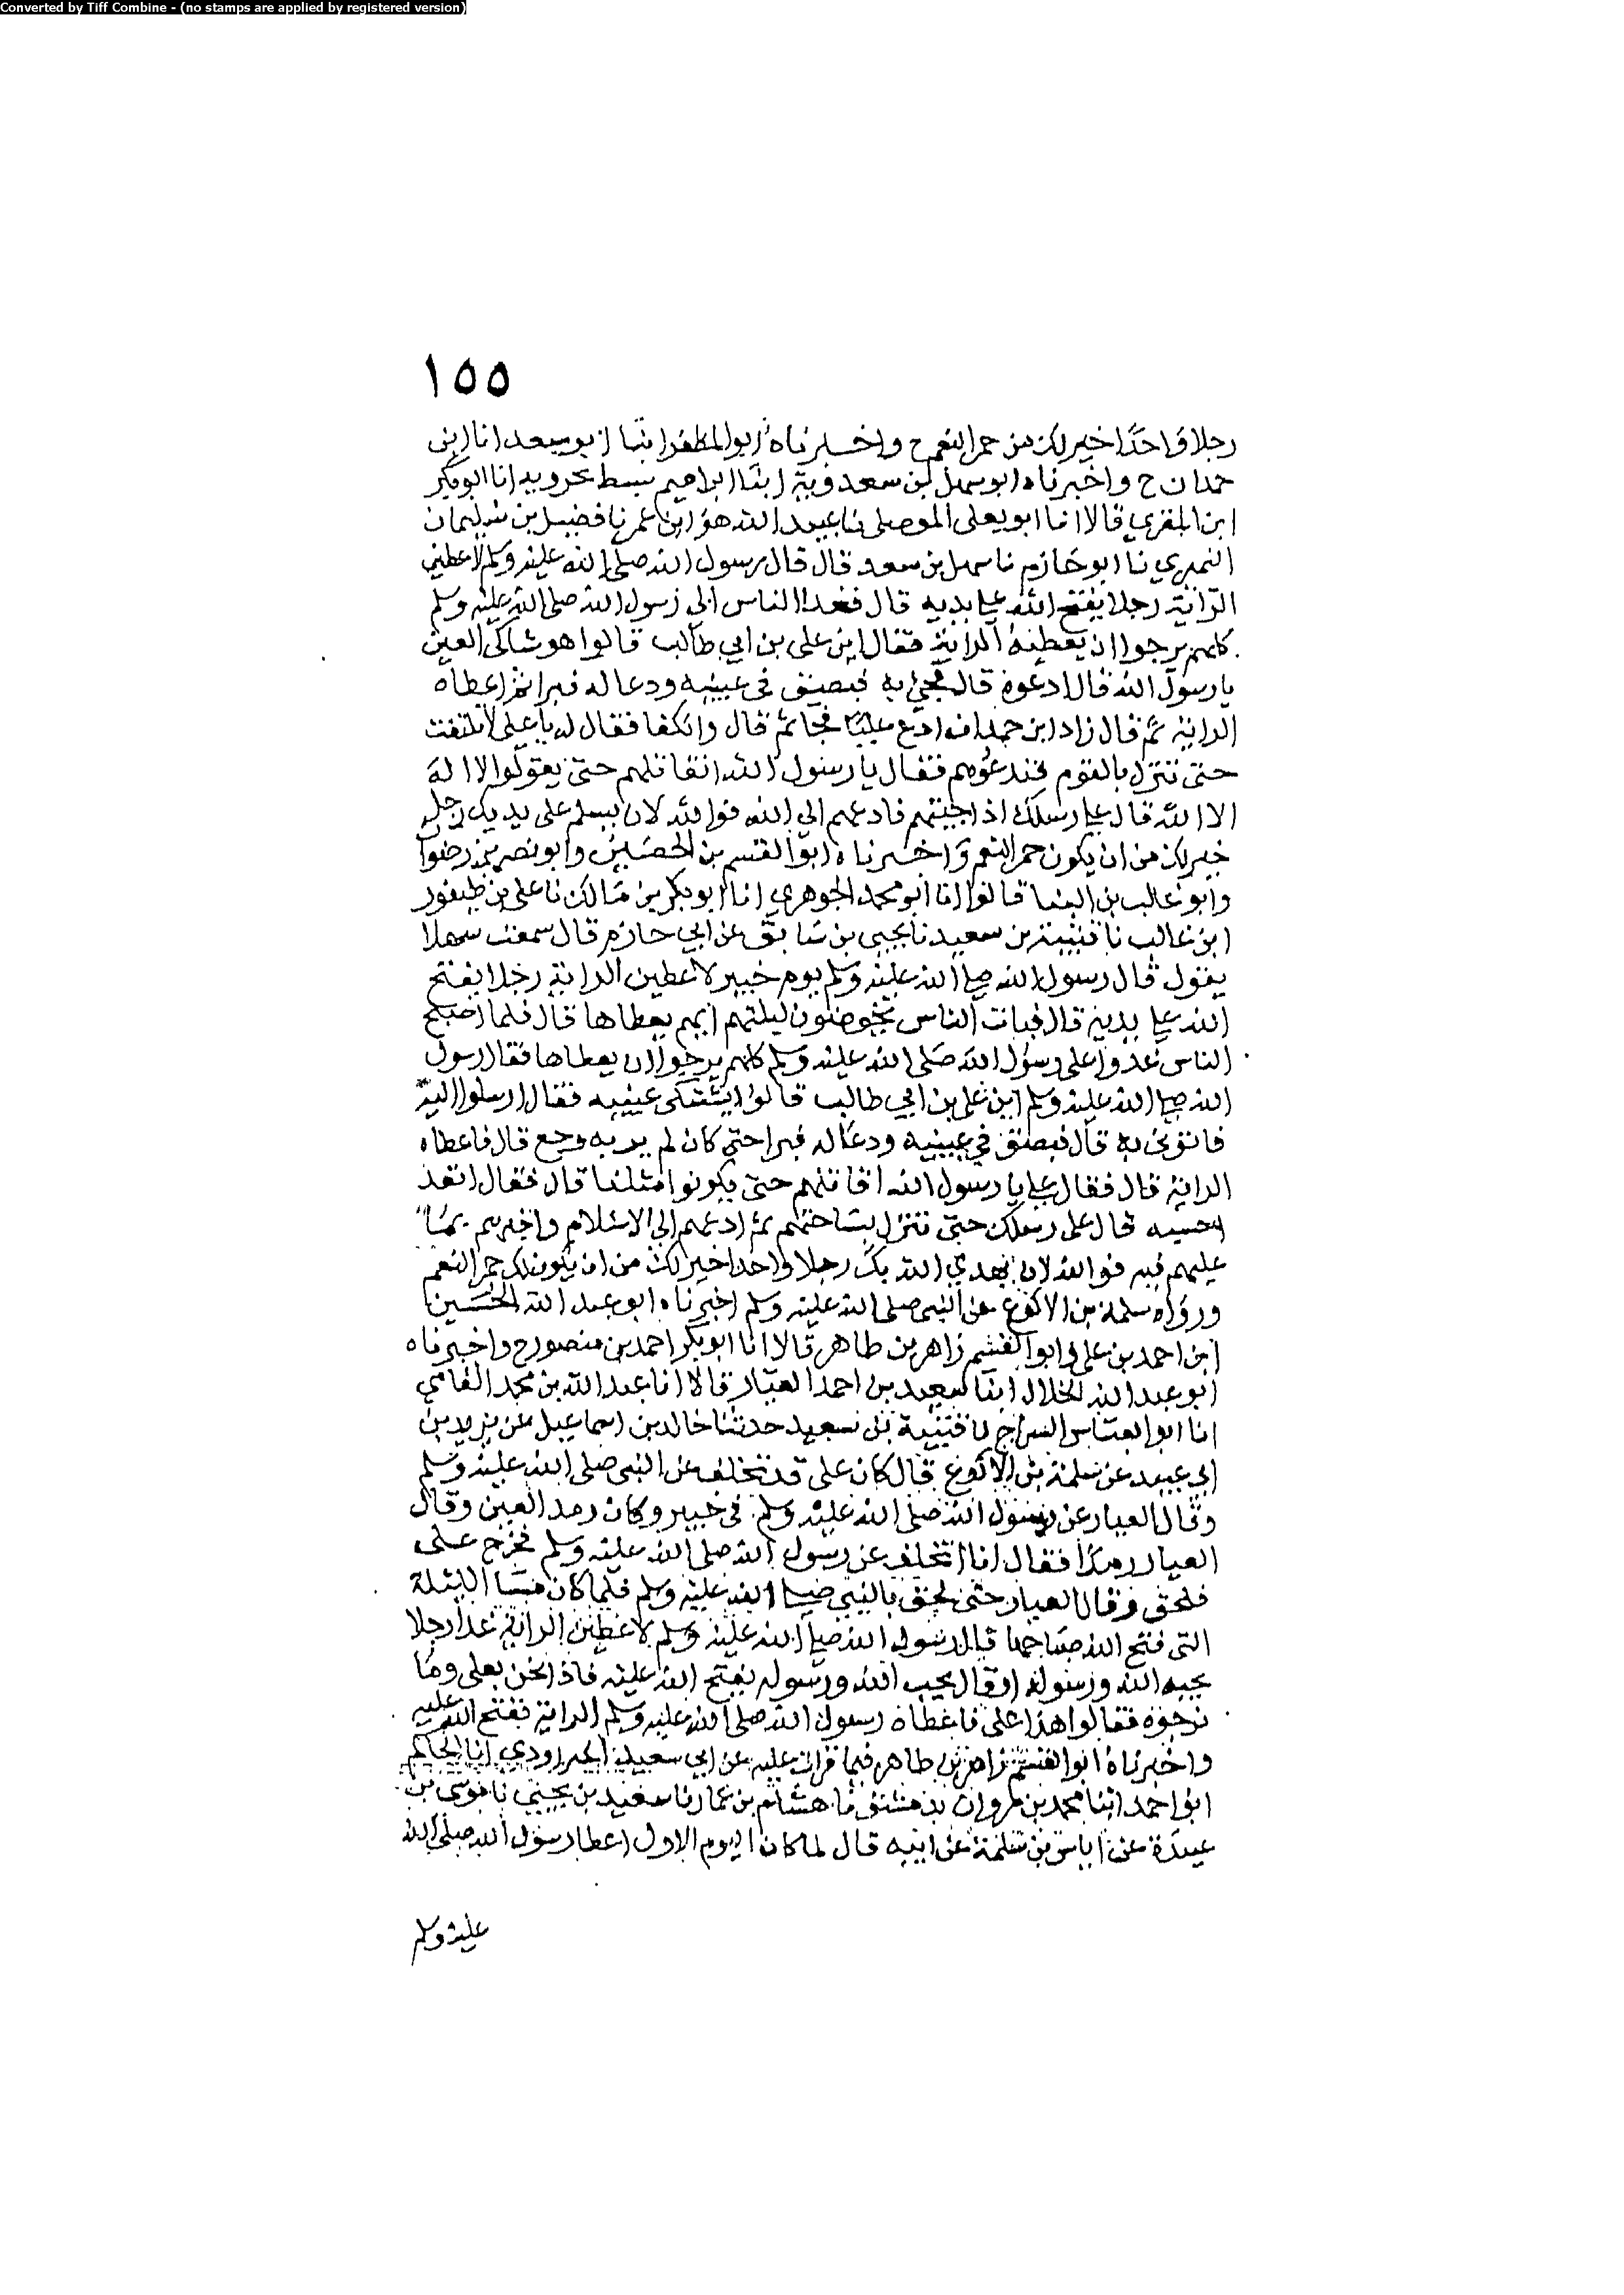 Converted by Tiff Combine - (no stamps are applied by registered version)
١٥٥
رجلا واحدا خير لك من حمر النعم ح واخبرناه ابو المظفر انبا ابو سعد انا ابن
حمدان ح واخبرناه ابو سهل بن سعدوية ابنا ابراهيم سبط بحرويه انا ابو بكر
ابن المقري قالا انا ابو يعلى الموصلي نا عبيد الله هو ابن عمر نا فضيل بن سليمان
النميري نا ابو حازم نا سهل بن سعد قال قال رسول الله صلى الله عليه وسلم لاعطين
الراية رجلا يفتح الله على يديه قال فغدا الناس الى رسول الله صلى الله عليه وسلم
كلهم يرجوا ان يعطيه الراية فقال اين على بن ابي طالب قالوا هو شاكى العين
يا رسول الله قال ادعوه قال فجئ به فبصق فى عينيه ودعا له فبرا ثم اعطاه
الراية ثم قال زاد ابن حمدان ادع عليا فجا ثم قال وانكفا فقال له يا على لا تلتفت
حتى تنزل بالقوم فتدعوهم فقال يا رسول الله انقاتلهم حتى يقولوا لا اله
الا الله قال على رسلك اذا جيتهم فادعهم الى الله فوالله لان يسلم على يديك رجل
خير لك من ان يكون حمر النعم واخبرناه ابو القسم بن الحصين وابو نصر بن رضوان
وابو غالب بن البنا قالوا انا ابو محمد الجوهري انا ابو بكر بن مالك نا على بن طيفور
ابن غالب نا قتيبة بن سعيد نا يحيى بن سابق عن ابي حازم قال سمعت سهلا
يقول قال رسول الله صلى الله عليه وسلم يوم خيبر لاعطين الراية رجلا يفتح
الله على يديه قال فبات الناس يخوضون ليلتهم ايهم يعطاها قال فلما اصبح
الناس غدوا على رسول الله صلى الله عليه وسلم كلهم يرجوا ان يعطاها فقال رسول
الله صلى الله عليه وسلم اين على بن ابي طالب قالوا يشتكى عينيه فقال ارسلوا اليه
فاتوني به قال فبصق في عينيه ودعا له فبرا حتى كان لم ير به وجع قال فاعطاه
الراية قال فقال على يا رسول الله اقاتلهم حتى يكونوا مثلنا قال فقال انفذ
قال على رسلك حتى تنزل بساحتهم ثم ادعهم الى الاسلام واخبرهم بما
عليهم فيه فوالله لان يهدي الله بك رجلا واحدا خير لك من ان يكون لك حمر النعم
ورواه سلمة بن الاكوع عن النبى صلى الله عليه وسلم اخبرناه ابو عبد الله الحسين
ابن احمد بن على وابو القسم زاهر بن طاهر قالا انا ابو بكر احمد بن منصور ح واخبرناه
ابو عبد الله الخلال ابنا سعيد بن احمد العيار قالا انا عبد الله بن محمد الفامي
انا ابو العباس السراج نا قتيبة بن سعيد حدثنا خالد بن اسماعيل عن يزيد بن
ابي عبيد عن سلمة بن الاكوع قال كان على قد تخلف عن النبى صلى الله عليه وسلم
وقال العيار عن رسول الله صلى الله عليه وسلم فى خيبر وكان رمد العين وقال
العيار رمدا فقال انا اتخلف عن رسول الله صلى الله عليه وسلم فخرج على
فلحق وقال العيار حتى لحق بالنبى صلى الله عليه وسلم فلما كان مسا الليلة
التى فتح الله صباحها قال رسول الله صلى الله عليه وسلم لاعطين الراية غدا رجلا
يحبه الله ورسوله او قال يحب الله ورسوله يفتح الله عليه فاذا نحن بعلى وما
نرجوه فقالوا هذا على فاعطاه رسول الله صلى الله عليه وسلم الراية ففتح الله عليه
واخبرناه ابو القسم زاهر بن طاهر فيما قرات عليه عن ابي سعيد الجيزرودي انا الحاكم
ابو احمد ابنا محمد بن مروان بدمشق نا هشام بن عمار نا سعيد بن يحيى نا موسى بن
عبيدة عن اياس بن سلمة عن ابيه قال لما كان اليوم الاول اعطا رسول الله صلى الله
عليه وسلم